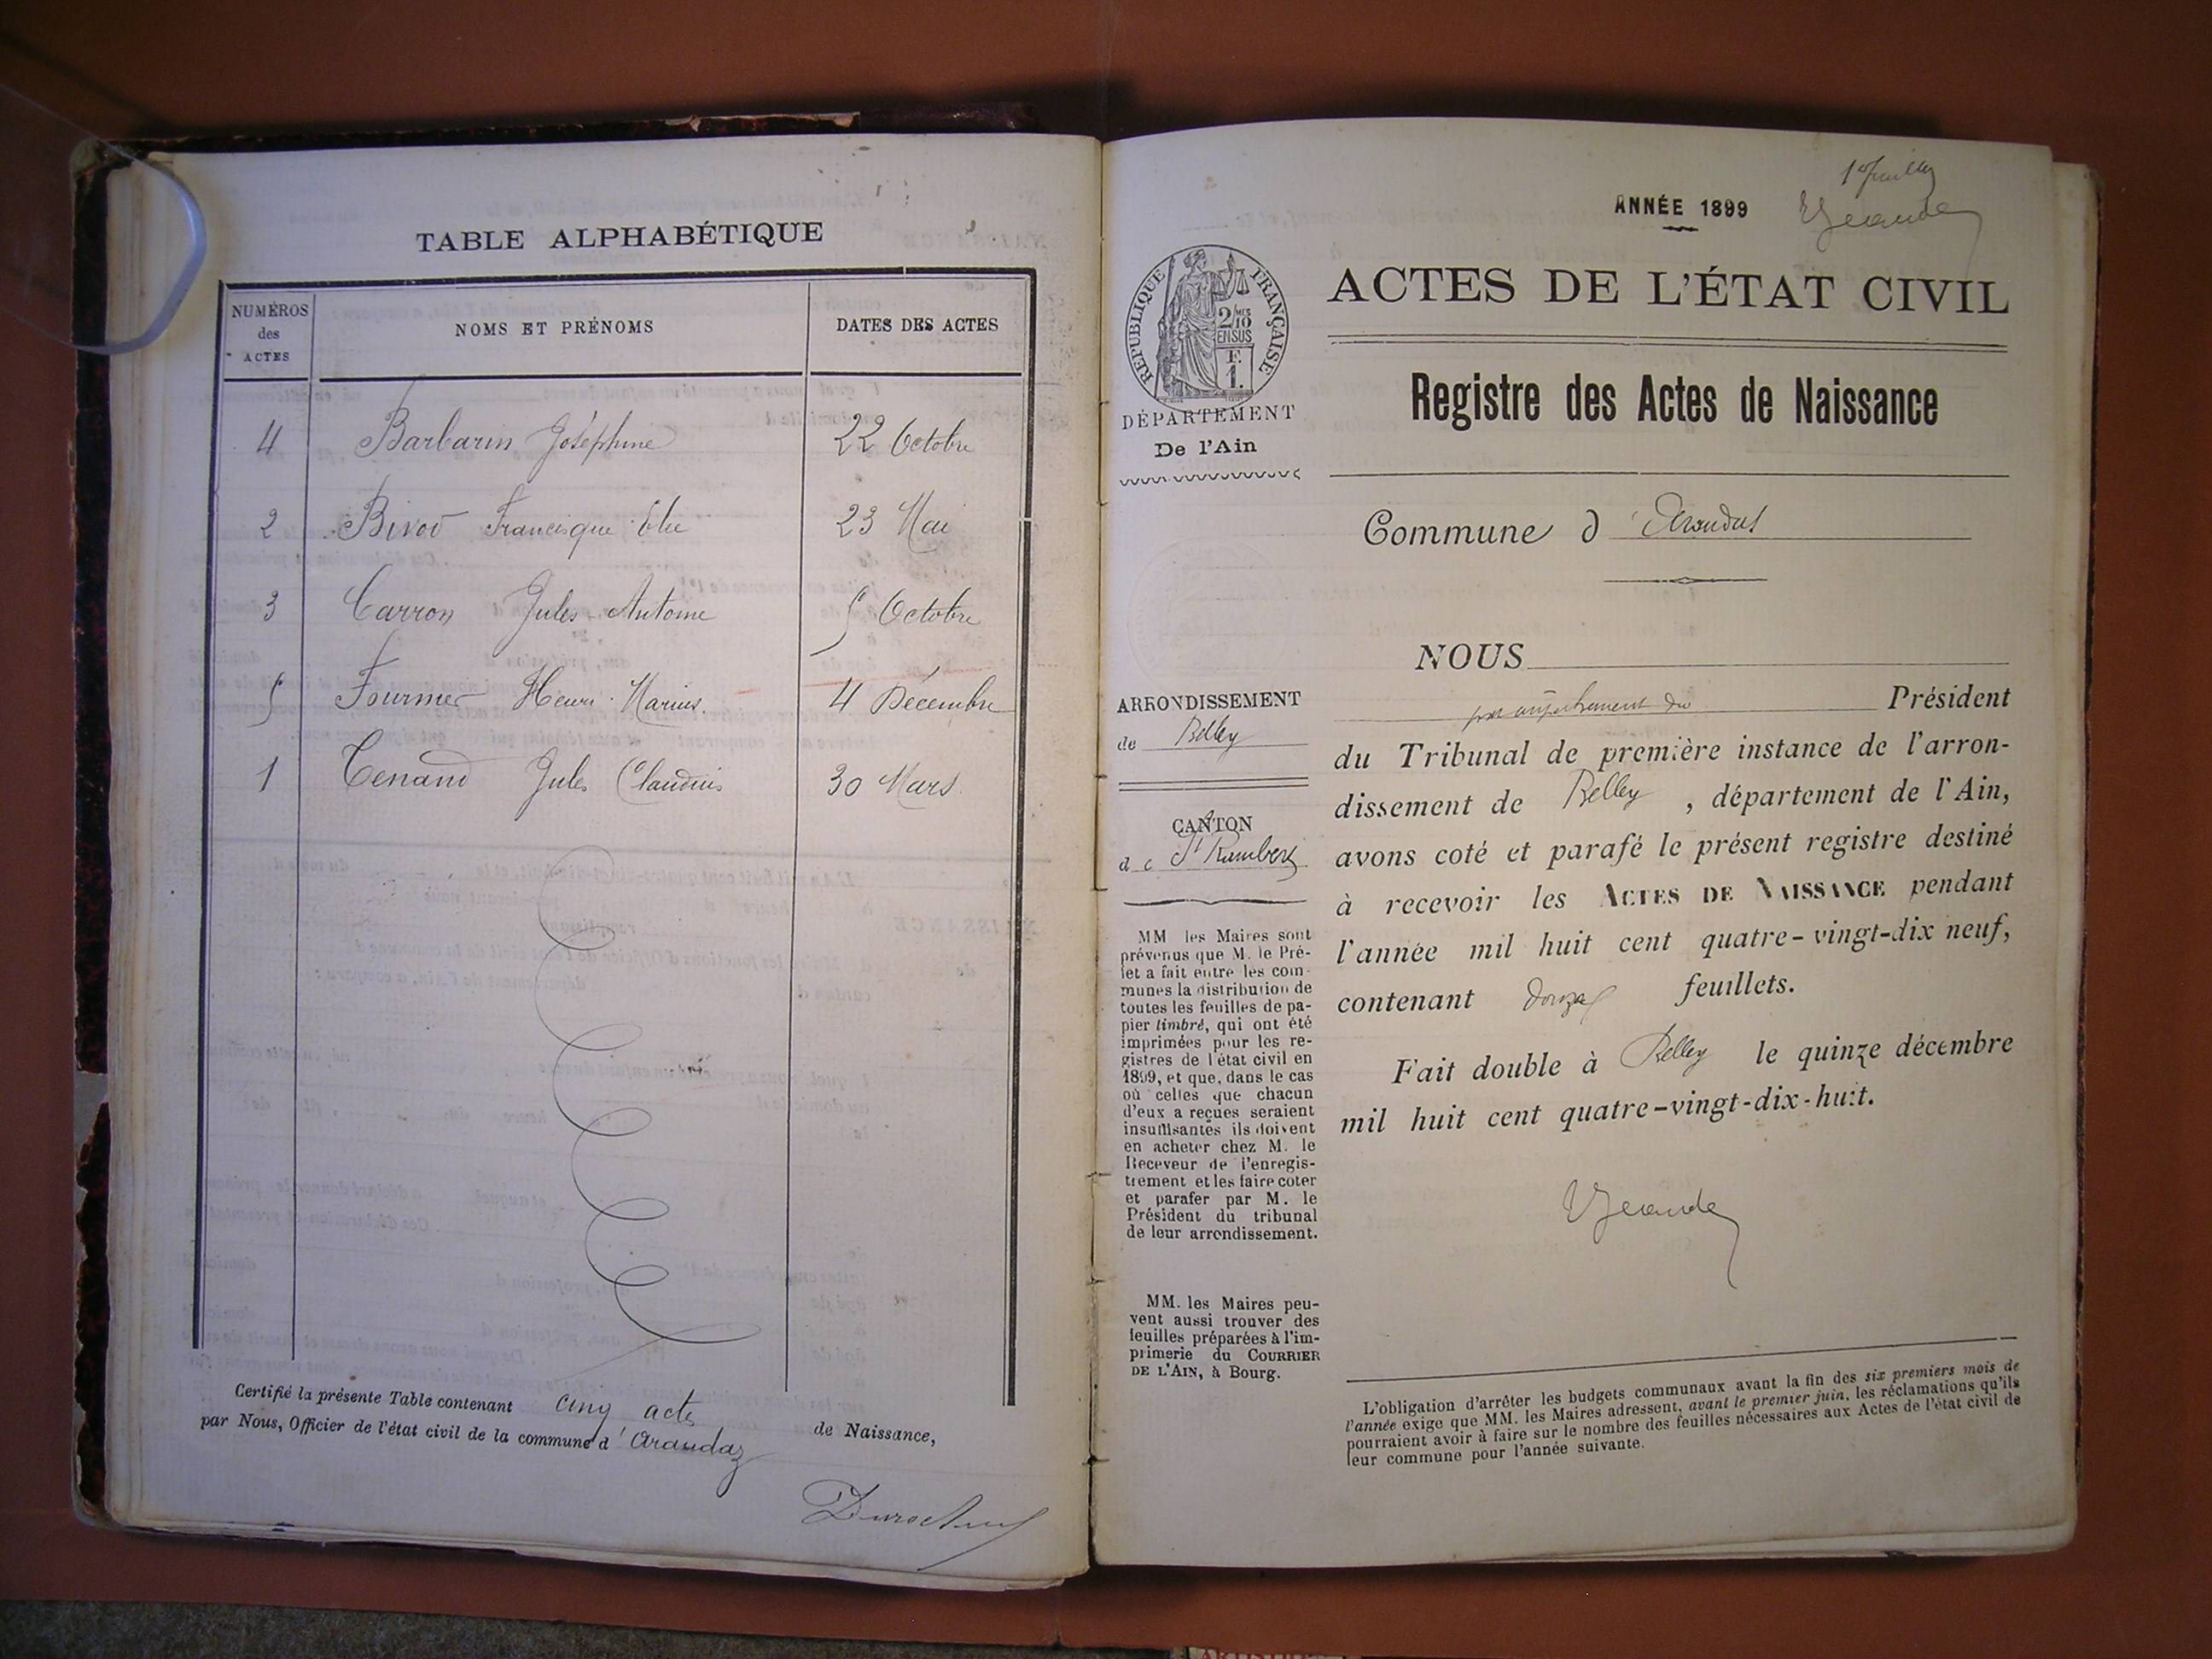 TABLE ALPHABÉTIQUE
NUMÉROS des ACTES
NOMS ET PRÉNOMS
DATES DES ACTES
4 Barbarin Joséphine 22 Octobre
2 Francisque Elie 23 Mai
3 Carron Jules Antoine 5 Octobre
5 Fournier Henri Marius. 4 Décembre
1 Tenand Jules Claudius 30 Mars.
Certifié la présente Table contenant cinq actes de Naissance,
par Nous, Officier de l'état civil de la commune d'Arandaz
1er feuillet
ANNÉE 1899
RÉPUBLIQUE FRANÇAISE
2/10MES
EN SUS
F.
1.
ACTES DE L'ÉTAT CIVIL
DÉPARTEMENT
De l'Ain
Registre des Actes de Naissance
Commune d'Arandas
ARRONDISSEMENT
de Belley
CANTON
de St Rambert
MM les Maires sont
prévenus que M. le Pré-
fet a fait entre les com-
munes la distribution de
toutes les feuilles de pa-
pier timbré, qui ont été
imprimées pour les re-
gistres de l'état civil en
1899, et que, dans le cas
où celles que chacun
d'eux a reçues seraient
insuffisantes ils doivent
en acheter chez M. le
Receveur de l'enregis-
trement et les faire coter
et parafer par M. le
Président du tribunal
de leur arrondissement.
MM. les Maires peu-
vent aussi trouver des
feuilles préparées à l'im-
primerie du COURRIER
DE L'AIN, à Bourg.
NOUS
par empêchement du Président
du Tribunal de première instance de l'arron-
dissement de Belley, département de l'Ain,
avons coté et parafé le présent registre destiné
à recevoir les ACTES DE NAISSANCE pendant
l'année mil huit cent quatre-vingt-dix neuf,
contenant douze feuillets.
Fait double à Belley le quinze décembre
mil huit cent quatre-vingt-dix-huit.
L'obligation d'arrêter les budgets communaux avant la fin des six premiers mois de
l'année exige que MM. les Maires adressent, avant le premier juin, les réclamations qu'ils
pourraient avoir à faire sur le nombre des feuilles nécessaires aux Actes de l'état civil de
leur commune pour l'année suivante.